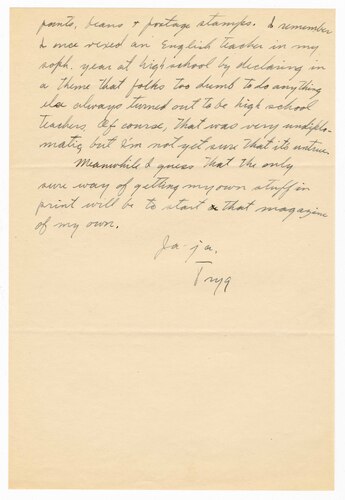 pants, beans + postage stamps. I remember
I once vexed an English teacher in my
soph. year at high school by declaring in
a theme that folks too dumb to do anything
else always turned out to be high school
teachers. Of course, that was very undiplo-
matic, but I'm not yet sure that its untrue.
Meanwhile I guess that the only
sure way of getting my own stuff in
print will be to start that magazine
of my own.
Ja-ja,
Tryg